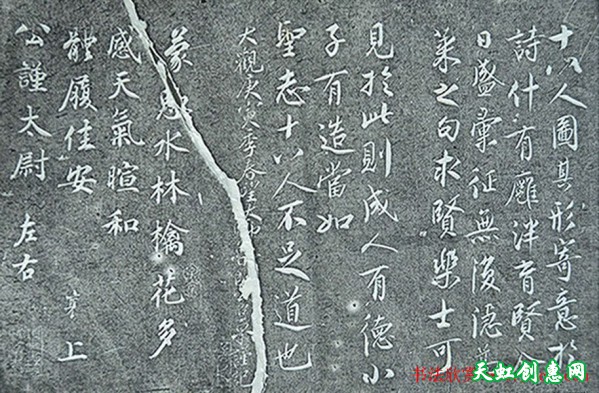 十八人圖其形寄意於
詩什有廱泮育賢今
日盛彙征無復隱蒿
萊之句求賢樂士可
見於此則成人有德小
子有造當如
聖志十八人不足道也
大觀庚寅季春
蒙惠水林檎花多
感天氣暄和
體履佳安
公謹太尉 左右
上
书法欣赏
天虹创惠网